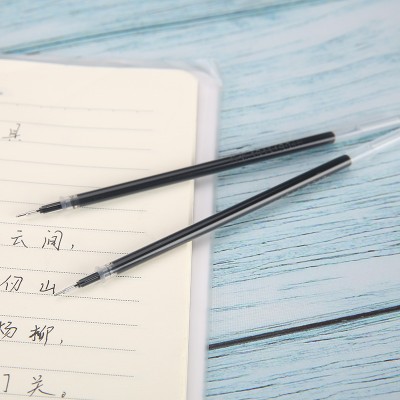 云间,
仞山
杨柳,
关。